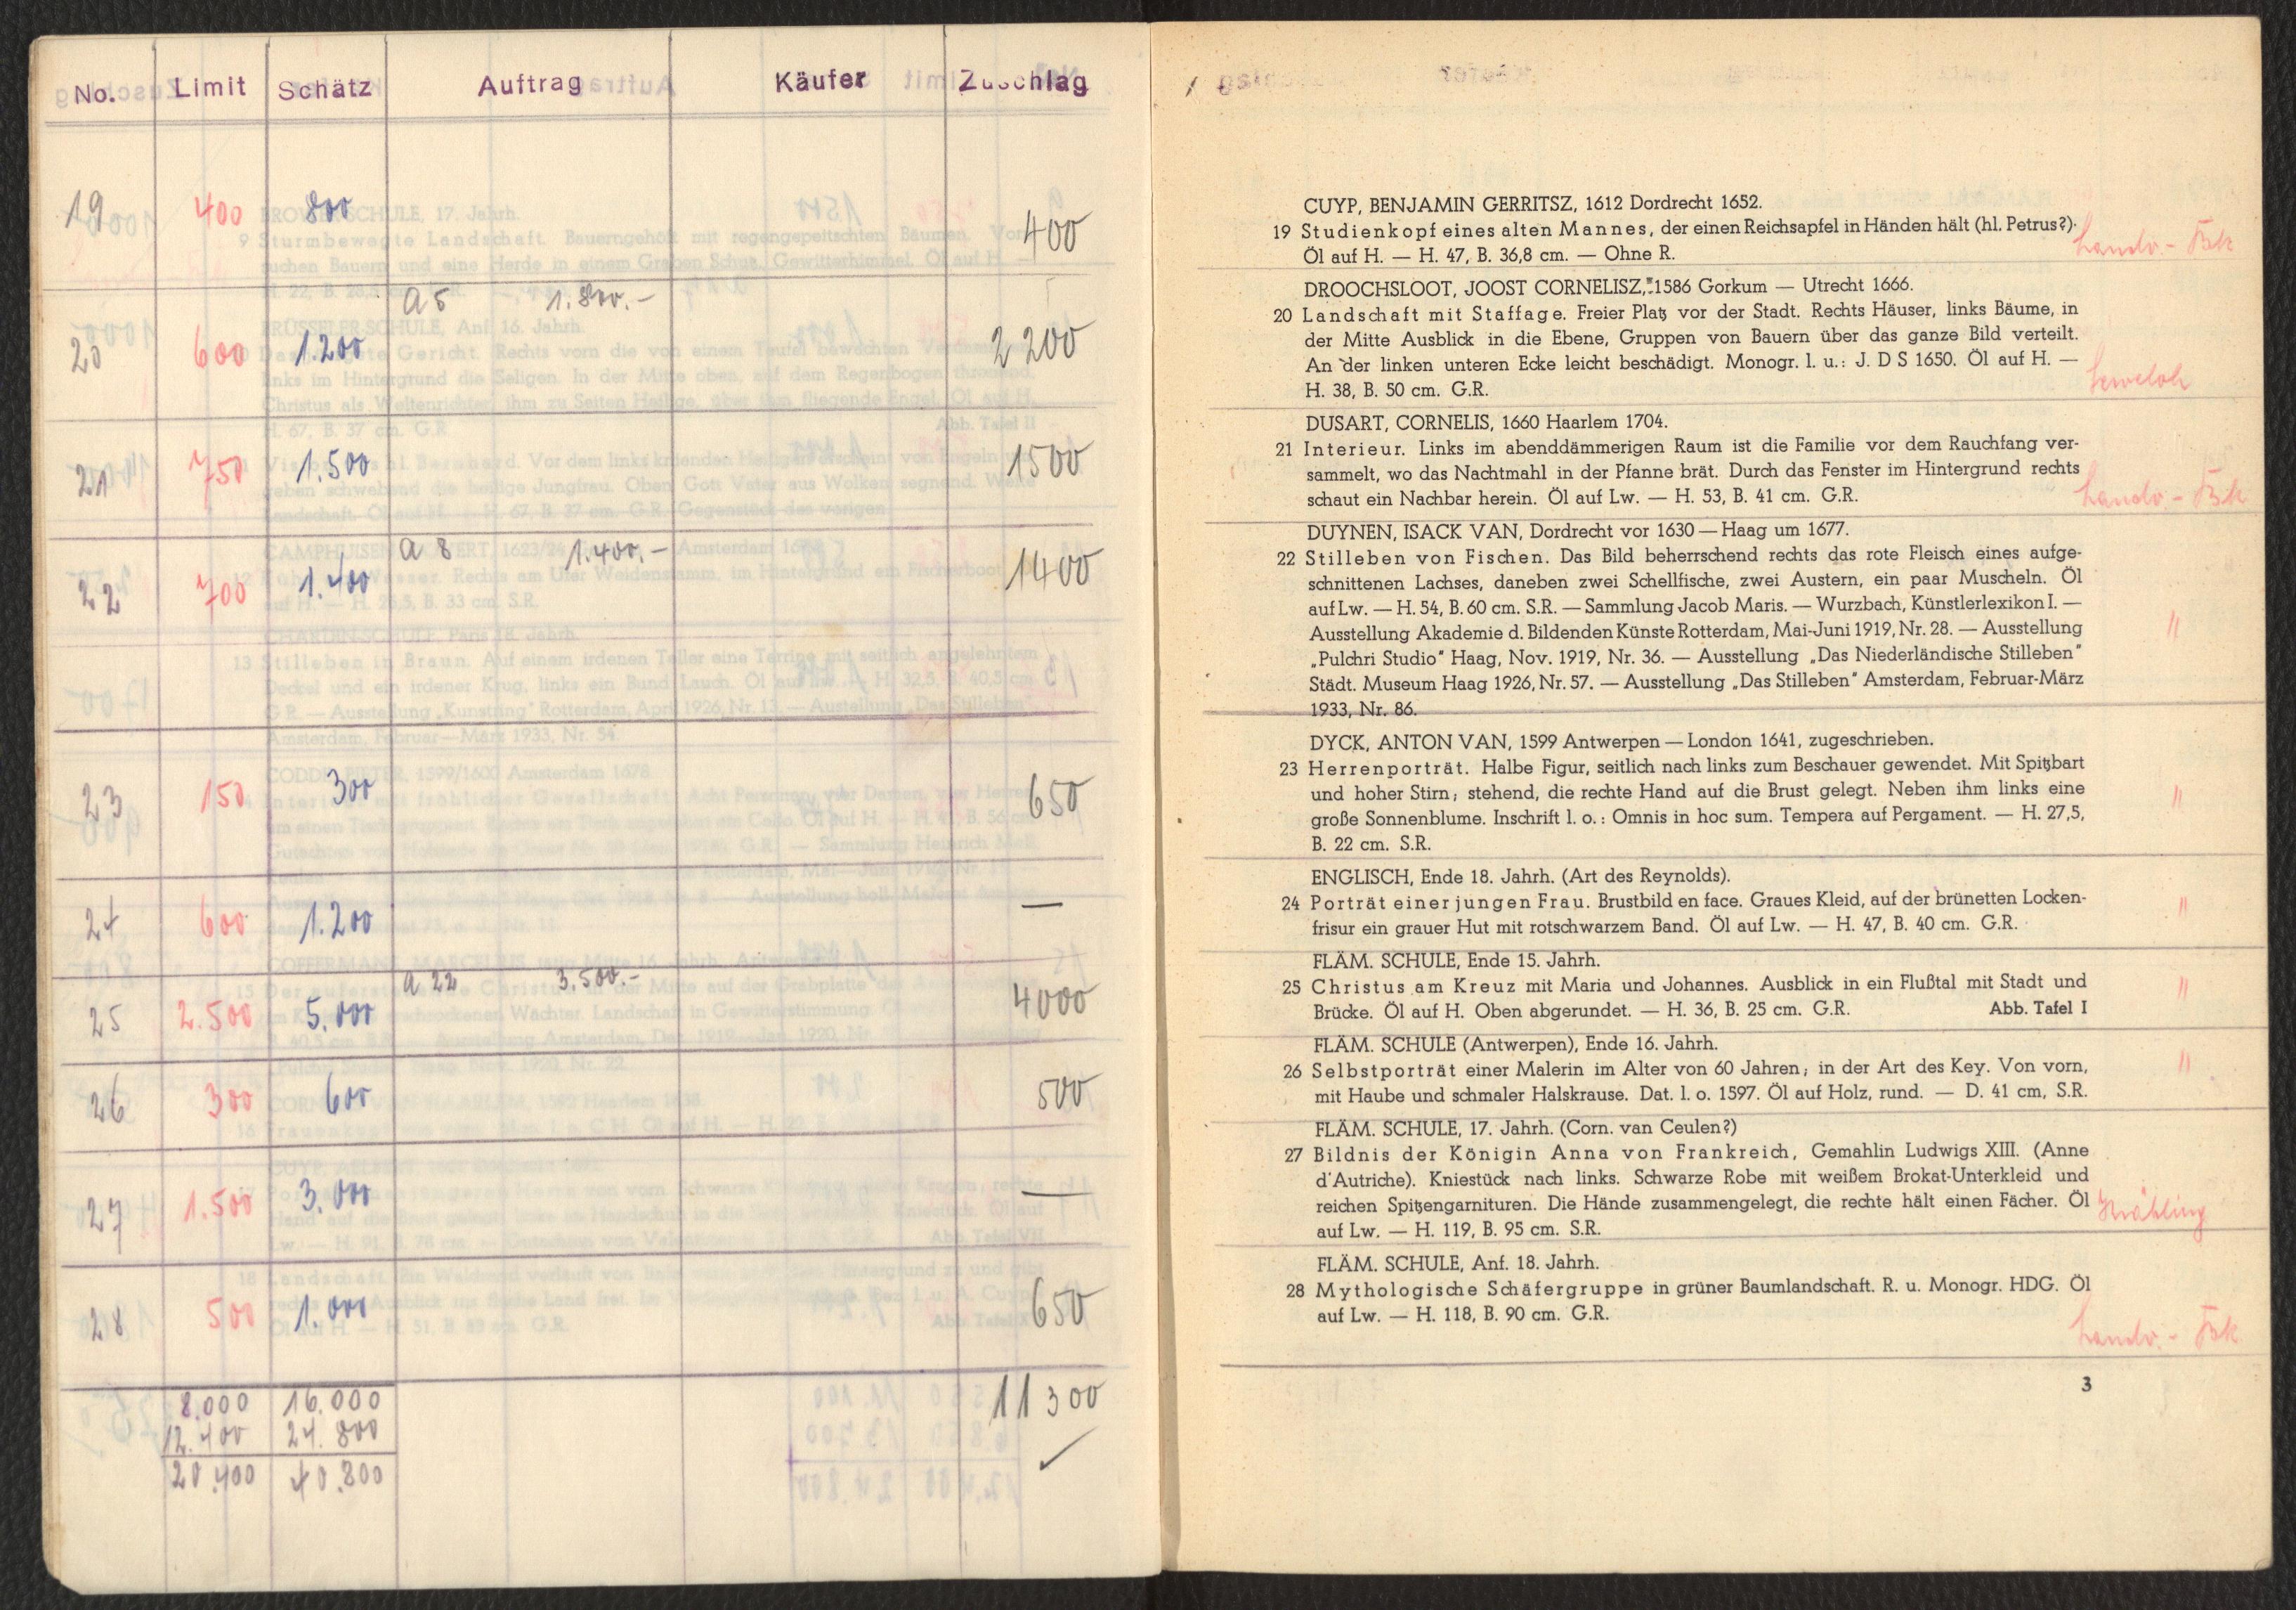 No. Limit Schätz Auftrag Käufer Zuschlag
19 400 800 400
20 600 1.200 A 5 1.800.- 2200
21 750 1.500 1500
22 700 1.400 A 8 1.400.- 1400
23 150 300 650
24 600 1.200 —
25 2.500 5.000 A 22 3.500.- 4000
26 300 600 500
27 1.500 3.000 —
28 500 1.000 650
8.000 16.000 11300
12.400 24.800 ✓
20.400 40.800
CUYP, BENJAMIN GERRITSZ, 1612 Dordrecht 1652.
19 Studienkopf eines alten Mannes, der einen Reichsapfel in Händen hält (hl. Petrus?).
Öl auf H. — H. 47, B. 36,8 cm. — Ohne R.
DROOCHSLOOT, JOOST CORNELISZ, 1586 Gorkum — Utrecht 1666.
20 Landschaft mit Staffage. Freier Platz vor der Stadt. Rechts Häuser, links Bäume, in
der Mitte Ausblick in die Ebene, Gruppen von Bauern über das ganze Bild verteilt.
An der linken unteren Ecke leicht beschädigt. Monogr. l. u.: J. D S 1650. Öl auf H. —
H. 38, B. 50 cm. G.R.
DUSART, CORNELIS, 1660 Haarlem 1704.
21 Interieur. Links im abenddämmerigen Raum ist die Familie vor dem Rauchfang ver-
sammelt, wo das Nachtmahl in der Pfanne brät. Durch das Fenster im Hintergrund rechts
schaut ein Nachbar herein. Öl auf Lw. — H. 53, B. 41 cm. G.R.
DUYNEN, ISACK VAN, Dordrecht vor 1630 — Haag um 1677.
22 Stilleben von Fischen. Das Bild beherrschend rechts das rote Fleisch eines aufge-
schnittenen Lachses, daneben zwei Schellfische, zwei Austern, ein paar Muscheln. Öl
auf Lw. — H. 54, B. 60 cm. S.R. — Sammlung Jacob Maris. — Wurzbach, Künstlerlexikon I. —
Ausstellung Akademie d. Bildenden Künste Rotterdam, Mai-Juni 1919, Nr. 28. — Ausstellung
"
„Pulchri Studio" Haag, Nov. 1919, Nr. 36. — Ausstellung „Das Niederländische Stilleben"
Städt. Museum Haag 1926, Nr. 57. — Ausstellung „Das Stilleben" Amsterdam, Februar-März
1933, Nr. 86.
DYCK, ANTON VAN, 1599 Antwerpen — London 1641, zugeschrieben.
23 Herrenporträt. Halbe Figur, seitlich nach links zum Beschauer gewendet. Mit Spitzbart
und hoher Stirn; stehend, die rechte Hand auf die Brust gelegt. Neben ihm links eine
"
große Sonnenblume. Inschrift l. o.: Omnis in hoc sum. Tempera auf Pergament. — H. 27,5,
B. 22 cm. S.R.
ENGLISCH, Ende 18. Jahrh. (Art des Reynolds).
24 Porträt einer jungen Frau. Brustbild en face. Graues Kleid, auf der brünetten Locken-
"
frisur ein grauer Hut mit rotschwarzem Band. Öl auf Lw. — H. 47, B. 40 cm. G.R.
FLÄM. SCHULE, Ende 15. Jahrh.
25 Christus am Kreuz mit Maria und Johannes. Ausblick in ein Flußtal mit Stadt und
"
Brücke. Öl auf H. Oben abgerundet. — H. 36, B. 25 cm. G.R. Abb. Tafel I
FLÄM. SCHULE (Antwerpen), Ende 16. Jahrh.
26 Selbstporträt einer Malerin im Alter von 60 Jahren; in der Art des Key. Von vorn,
"
mit Haube und schmaler Halskrause. Dat. l. o. 1597. Öl auf Holz, rund. — D. 41 cm, S.R.
FLÄM. SCHULE, 17. Jahrh. (Corn. van Ceulen?)
27 Bildnis der Königin Anna von Frankreich, Gemahlin Ludwigs XIII. (Anne
d'Autriche). Kniestück nach links. Schwarze Robe mit weißem Brokat-Unterkleid und
reichen Spitzengarnituren. Die Hände zusammengelegt, die rechte hält einen Fächer. Öl
auf Lw. — H. 119, B. 95 cm. S.R.
FLÄM. SCHULE, Anf. 18. Jahrh.
28 Mythologische Schäfergruppe in grüner Baumlandschaft. R. u. Monogr. HDG. Öl
auf Lw. — H. 118, B. 90 cm. G.R.
3